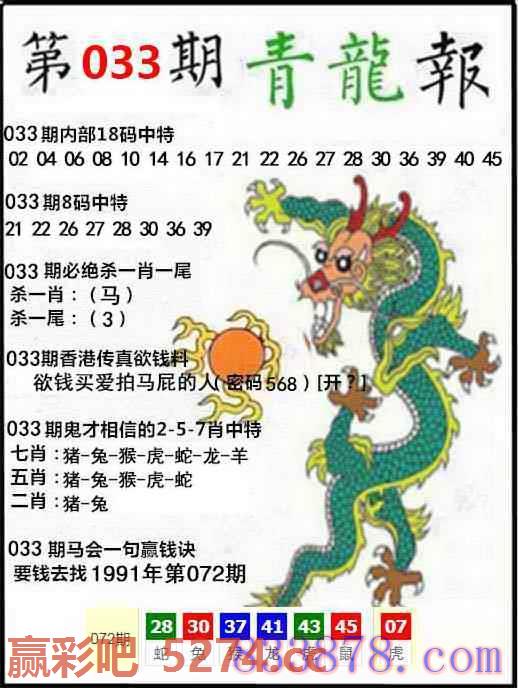 第033期青龍報
033期内部18码中特
02 04 06 08 10 14 16 17 21 22 26 27 28 30 36 39 40 45
033期8码中特
21 22 26 27 28 30 36 39
033期必绝杀一肖一尾
杀一肖：(马)
杀一尾：(3)
033期香港传真欲钱料
欲钱买爱拍马屁的人(密码568)[开?]
033期鬼才相信的2-5-7肖中特
七肖：猪-兔-猴-虎-蛇-龙-羊
五肖：猪-兔-猴-虎-蛇
二肖：猪-兔
033期马会一句赢钱诀
要钱去找1991年第072期
072期 28 30 37 41 43 45 07
蛇 兔 猴 龙 虎 鼠 虎
赢彩吧 5274.cc
3878.com